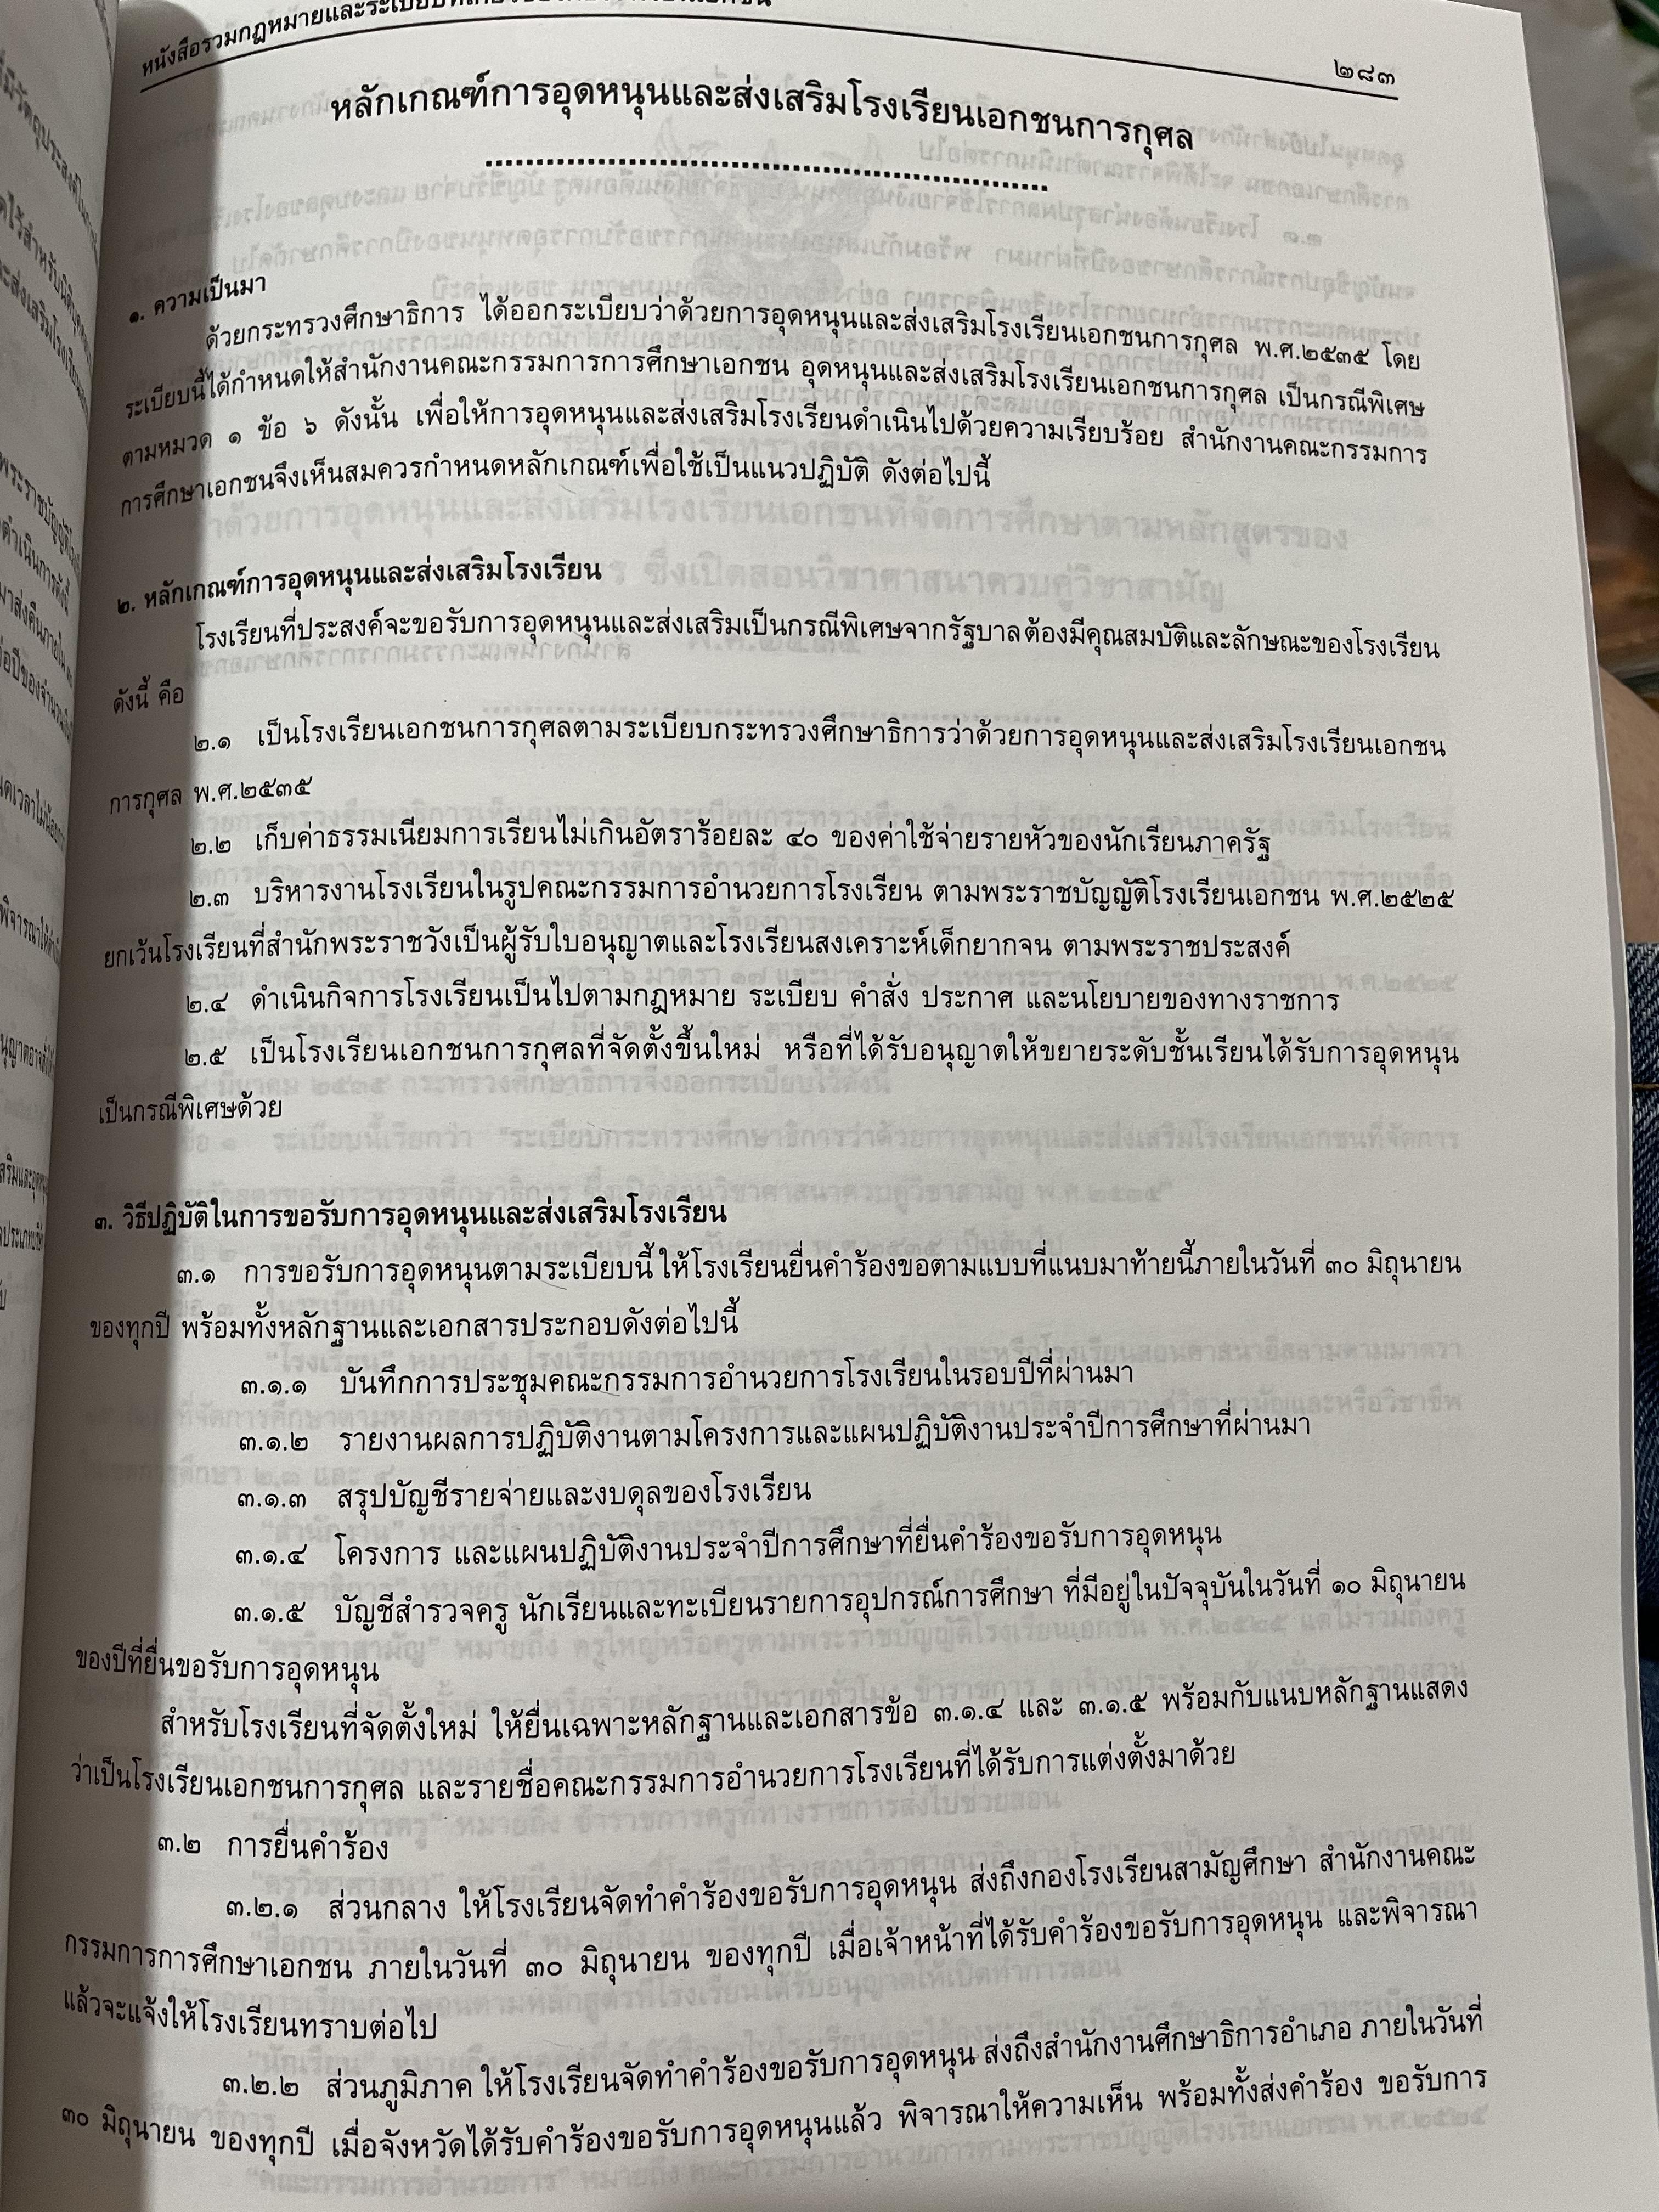 หนังสือรวมกฎหมายและระเบียบ
๒๘๓
หลักเกณฑ์การอุดหนุนและส่งเสริมโรงเรียนเอกชนการกุศล
๑. ความเป็นมา
ด้วยกระทรวงศึกษาธิการ ได้ออกระเบียบว่าด้วยการอุดหนุนและส่งเสริมโรงเรียนเอกชนการกุศล พ.ศ.๒๕๓๕ โดย
ระเบียบนี้ได้กำหนดให้สำนักงานคณะกรรมการการศึกษาเอกชน อุดหนุนและส่งเสริมโรงเรียนเอกชนการกุศล เป็นกรณีพิเศษ
ตามหมวด ๑ ข้อ ๖ ดังนั้น เพื่อให้การอุดหนุนและส่งเสริมโรงเรียนดำเนินไปด้วยความเรียบร้อย สำนักงานคณะกรรมการ
การศึกษาเอกชนจึงเห็นสมควรกำหนดหลักเกณฑ์เพื่อใช้เป็นแนวปฏิบัติ ดังต่อไปนี้
๒. หลักเกณฑ์การอุดหนุนและส่งเสริมโรงเรียน
โรงเรียนที่ประสงค์จะขอรับการอุดหนุนและส่งเสริมเป็นกรณีพิเศษจากรัฐบาลต้องมีคุณสมบัติและลักษณะของโรงเรียน
ดังนี้ คือ
๒.๑ เป็นโรงเรียนเอกชนการกุศลตามระเบียบกระทรวงศึกษาธิการว่าด้วยการอุดหนุนและส่งเสริมโรงเรียนเอกชน
การกุศล พ.ศ.๒๕๓๕
๒.๒ เก็บค่าธรรมเนียมการเรียนไม่เกินอัตราร้อยละ ๔๐ ของค่าใช้จ่ายรายหัวของนักเรียนภาครัฐ
๒.๓ บริหารงานโรงเรียนในรูปคณะกรรมการอำนวยการโรงเรียน ตามพระราชบัญญัติโรงเรียนเอกชน พ.ศ.๒๕๒๕
ยกเว้นโรงเรียนที่สำนักพระราชวังเป็นผู้รับใบอนุญาตและโรงเรียนสงเคราะห์เด็กยากจน ตามพระราชประสงค์
๒.๔ ดำเนินกิจการโรงเรียนเป็นไปตามกฎหมาย ระเบียบ คำสั่ง ประกาศ และนโยบายของทางราชการ
๒.๕ เป็นโรงเรียนเอกชนการกุศลที่จัดตั้งขึ้นใหม่ หรือที่ได้รับอนุญาตให้ขยายระดับชั้นเรียนได้รับการอุดหนุน
เป็นกรณีพิเศษด้วย
๓. วิธีปฏิบัติในการขอรับการอุดหนุนและส่งเสริมโรงเรียน
๓.๑ การขอรับการอุดหนุนตามระเบียบนี้ ให้โรงเรียนยื่นคำร้องขอตามแบบที่แนบมาท้ายนี้ภายในวันที่ ๓๐ มิถุนายน
ของทุกปี พร้อมทั้งหลักฐานและเอกสารประกอบดังต่อไปนี้
๓.๑.๑ บันทึกการประชุมคณะกรรมการอำนวยการโรงเรียนในรอบปีที่ผ่านมา
๓.๑.๒ รายงานผลการปฏิบัติงานตามโครงการและแผนปฏิบัติงานประจำปีการศึกษาที่ผ่านมา
๓.๑.๓ สรุปบัญชีรายจ่ายและงบดุลของโรงเรียน
๓.๑.๔ โครงการ และแผนปฏิบัติงานประจำปีการศึกษาที่ยื่นคำร้องขอรับการอุดหนุน
๓.๑.๕ บัญชีสำรวจครู นักเรียนและทะเบียนรายการอุปกรณ์การศึกษา ที่มีอยู่ในปัจจุบันในวันที่ ๑๐ มิถุนายน
ของปีที่ยื่นขอรับการอุดหนุน
สำหรับโรงเรียนที่จัดตั้งใหม่ ให้ยื่นเฉพาะหลักฐานและเอกสารข้อ ๓.๑.๔ และ ๓.๑.๕ พร้อมกับแนบหลักฐานแสดง
ว่าเป็นโรงเรียนเอกชนการกุศล และรายชื่อคณะกรรมการอำนวยการโรงเรียนที่ได้รับการแต่งตั้งมาด้วย
๓.๒ การยื่นคำร้อง
๓.๒.๑ ส่วนกลาง ให้โรงเรียนจัดทำคำร้องขอรับการอุดหนุน ส่งถึงกองโรงเรียนสามัญศึกษา สำนักงานคณะ
กรรมการการศึกษาเอกชน ภายในวันที่ ๓๐ มิถุนายน ของทุกปี เมื่อเจ้าหน้าที่ได้รับคำร้องขอรับการอุดหนุน และพิจารณา
แล้วจะแจ้งให้โรงเรียนทราบต่อไป
๓.๒.๒ ส่วนภูมิภาค ให้โรงเรียนจัดทำคำร้องขอรับการอุดหนุน ส่งถึงสำนักงานศึกษาธิการอำเภอ ภายในวันที่
๓๐ มิถุนายน ของทุกปี เมื่อจังหวัดได้รับคำร้องขอรับการอุดหนุนแล้ว พิจารณาให้ความเห็น พร้อมทั้งส่งคำร้อง ขอรับการ